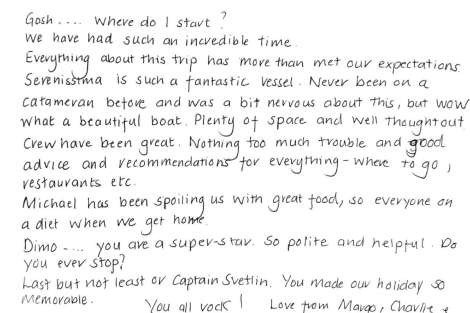 Gosh .... Where do I start?
We have had such an incredible time.
Everything about this trip has more than met our expectations.
Serenissima is such a fantastic vessel. Never been on a
catameran before and was a bit nervous about this, but wow
what a beautiful boat. Plenty of space and well thought out.
Crew have been great. Nothing too much trouble and good
advice and recommendations for everything - where to go,
restaurants etc.
Michael has been spoiling us with great food, so everyone on
a diet when we get home.
Dimo .... you are a super-star. So polite and helpful. Do
you ever stop?
Last but not least or Captain Svetlin. You made our holiday so
memorable.
You all rock! Love from Margo, Charlie &